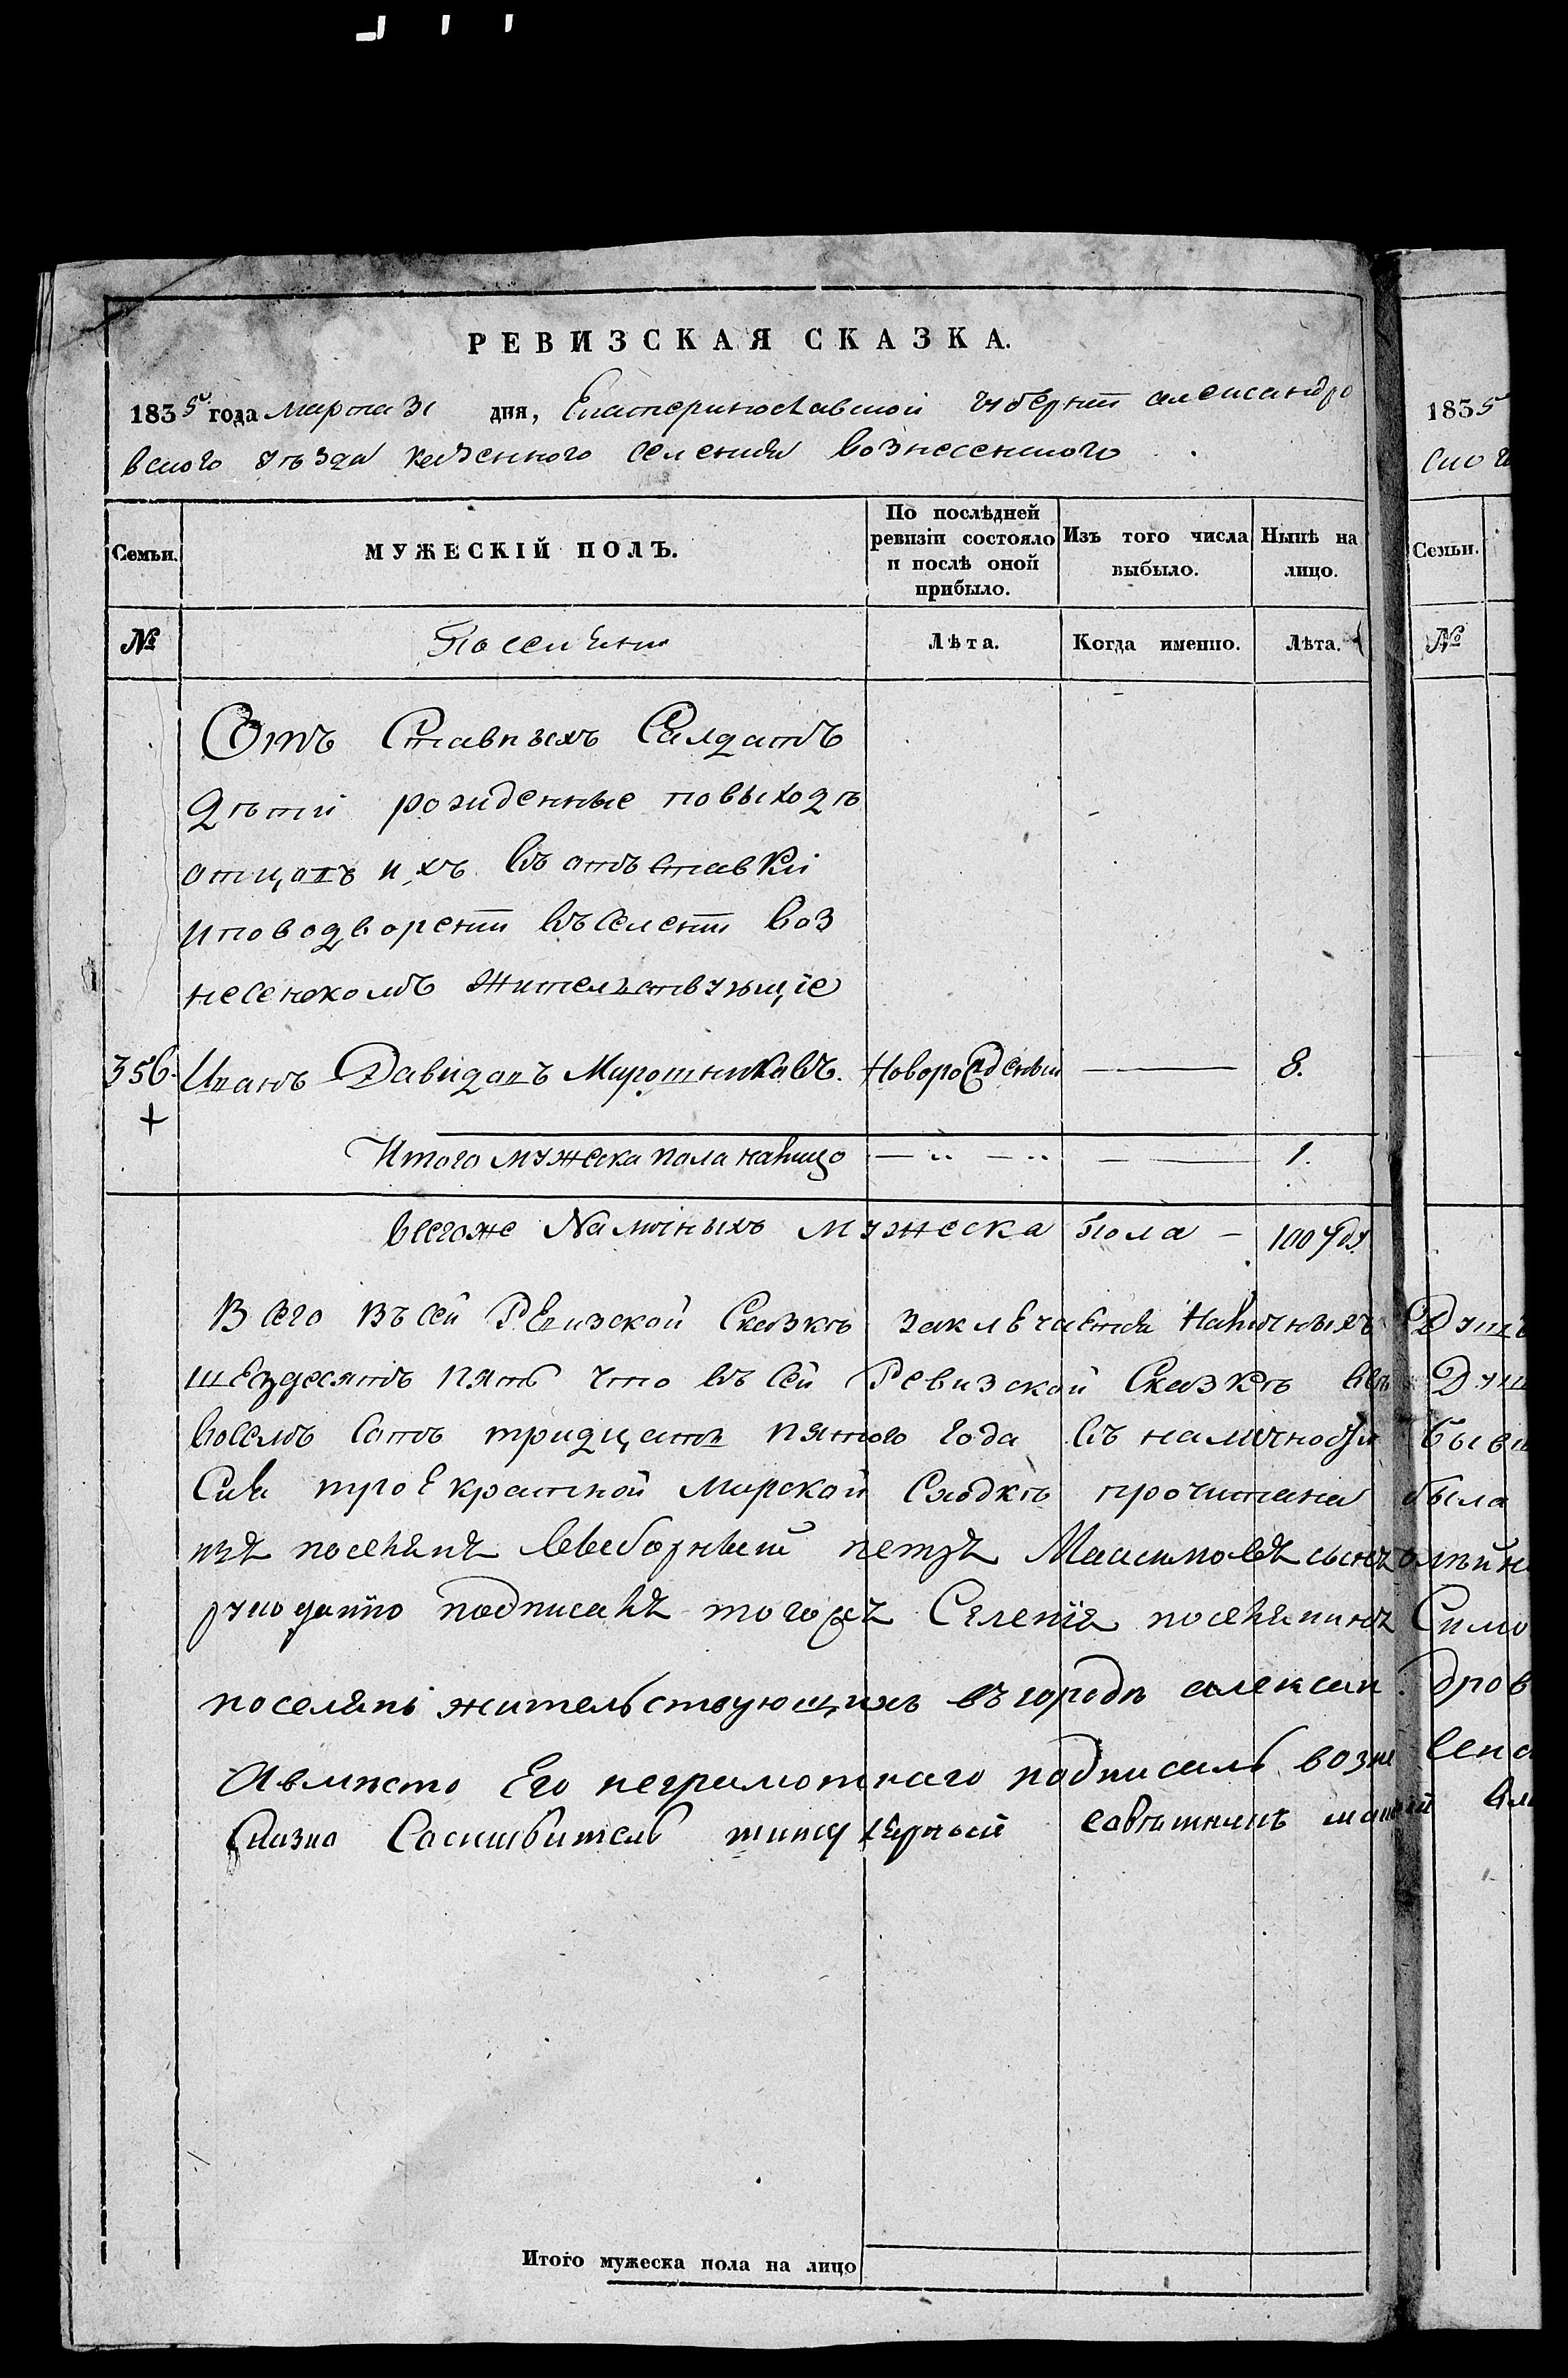 РЕВИЗСКАЯ СКАЗКА.
1835 года марта 31 дня, Екатеринославской губерній александро
вского уѣзда казенного селенія вознесенского
Семьи. МУЖЕСКІЙ ПОЛЪ. По послѣдней ревизіи состояло и послѣ оной прибыло. Изъ того числа выбыло. Нынѣ на лицо.
№ Поселяни Лѣта. Когда именно. Лѣта.
Отъ Ставныхъ Салдатъ
дѣтій рожденные повыходѣ
отцовъ ихъ въ отъставки
иповодвореніи въселеніи воз
несенскомъ жительствующіе
356. Иванъ Давидовъ Мирошниковъ. Новорожденый 8.
Итого мужеска пола налицо 1.
всегоже Наличныхъ мужеска пола
Всего въсей Ревизской Сказкѣ заключается Наличныхъ Душъ
шездесятъ пять что въ сей Ревизской Сказкѣ всѣ Душ
восемъ сотъ тридцать пятого года въ наличности бывш
Сія троекратной мирской сходкѣ прочитана была
изъ поселянъ выборный петръ Максимовъ сынъ
рукоданно подписалъ тогожъ Селенія поселянинъ Симо
поселянъ жительствующихъ въ городѣ александров
Авмѣсто Его неграмотнаго подписалъ вознесенс
Сказко Составитель титулярный савѣтникъ
Итого мужеска пола на лицо
1835
Семьи.
№